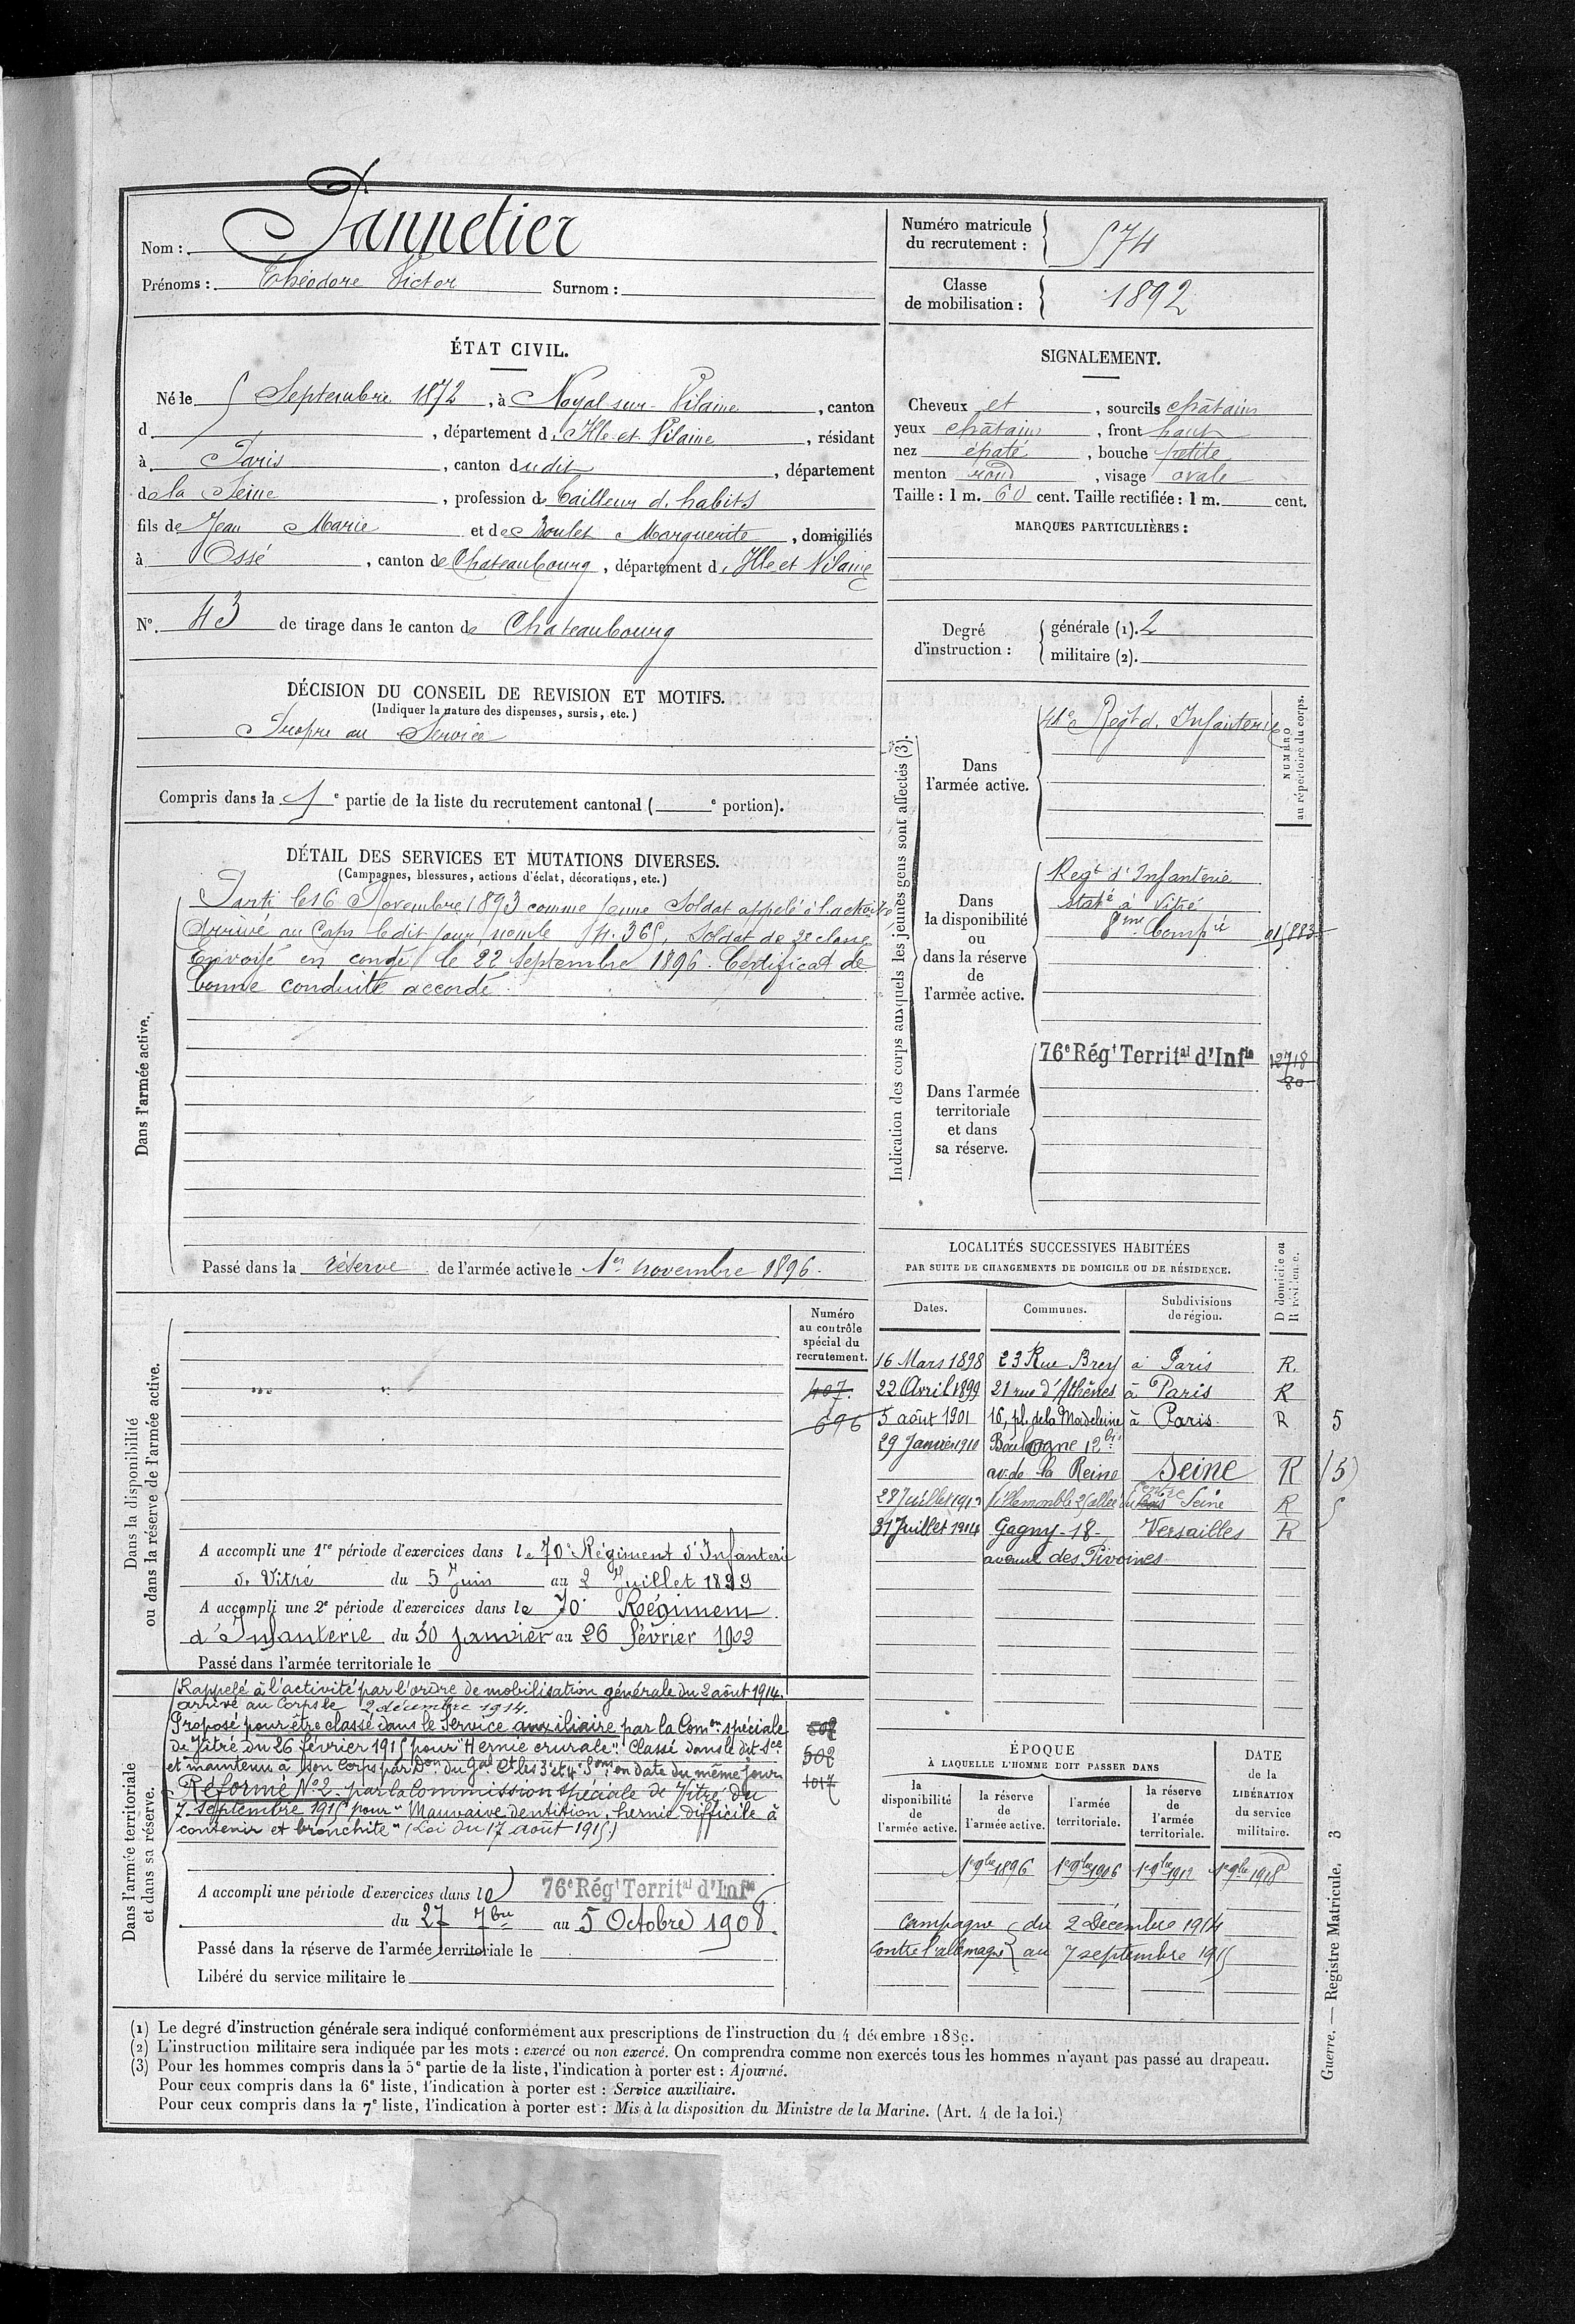 Nom : Pannetier
Prénoms : Théodore Victor Surnom :
Numéro matricule
du recrutement : 574
Classe
de mobilisation : 1892
ÉTAT CIVIL.
Né le 5 Septembre 1872, à Noyal sur Vilaine, canton
d , département d'Ille et Vilaine, résidant
à Paris, canton dudit, département
de la Seine, profession de tailleur d'habits
fils de Jean Marie et de Boulet Marguerite, domiciliés
à Ossé, canton de Chateaubourg, département d'Ille et Vilaine
N° 43 de tirage dans le canton de Chateaubourg
SIGNALEMENT.
Cheveux et , sourcils châtains
yeux châtains, front haut
nez épaté, bouche petite
menton rond, visage ovale
Taille : 1 m. 60 cent. Taille rectifiée : 1 m. cent.
MARQUES PARTICULIÈRES :
Degré
d'instruction :
générale (1). 2
militaire (2).
DÉCISION DU CONSEIL DE REVISION ET MOTIFS.
(Indiquer la nature des dispenses, sursis, etc.)
Propre au Service
Compris dans la 1e partie de la liste du recrutement cantonal ( e portion).
DÉTAIL DES SERVICES ET MUTATIONS DIVERSES.
(Campagnes, blessures, actions d'éclat, décorations, etc.)
Dans l'armée active.
Parti le 16 Novembre 1893 comme jeune Soldat appelé à l'activité
Arrivé au Corps ledit jour, Soldat de 2e classe
Envoyé en congé le 22 Septembre 1896. Certificat de
bonne conduite accordé.
Passé dans la réserve de l'armée active le 1er novembre 1896.
Indication des corps auxquels les jeunes gens sont affectés (3).
NUMÉRO
au répertoire du corps.
Dans
l'armée active.
41e Regt d'Infanterie
Dans
la disponibilité
ou
dans la réserve
de
l'armée active.
Regt d'Infanterie
Staté à Vitré
8ème Compie
Dans l'armée
territoriale
et dans
sa réserve.
76e Régt Territal d'Infie
12718
80
LOCALITÉS SUCCESSIVES HABITÉES
PAR SUITE DE CHANGEMENTS DE DOMICILE OU DE RÉSIDENCE.
D domicile ou
R résidence.
Dates. Communes. Subdivisions
de région.
16 Mars 1898 23 Rue Brey à Paris R.
22 Avril 1899 21 rue d'Athènes à Paris R
5 août 1901 16, pl. de la Madeleine à Paris. R 5
29 Janvier 1910 Boulogne 12 bis
av. de la Reine Seine R (5)
Seine R 5
31 Juillet 1914 Gagny - 18 - Versailles R
avenue des Pivoines
Dans la disponibilité
ou dans la réserve de l'armée active.
Numéro
au contrôle
spécial du
recrutement.
407.
696
A accompli une 1re période d'exercices dans le 70e Régiment d'Infanterie
de Vitré du 5 Juin au 2 Juillet 1899
A accompli une 2e période d'exercices dans le 70e Régiment
d'Infanterie du 30 Janvier au 26 février 1902
Passé dans l'armée territoriale le
Dans l'armée territoriale
et dans sa réserve.
Rappelé à l'activité par l'ordre de mobilisation générale du 2 août 1914.
arrivé au Corps le 2 décembre 1914.
Proposé pour être classé dans le Service auxiliaire par la Comon spéciale
de Vitré du 26 février 1915 pour "Hernie crurale". Classé dans le dit Sce
et maintenu à son Corps par Don du Gal Ct les 3e et 4e Sons en date du même jour
Réformé N°2 par la Commission spéciale de Vitré du
7 septembre 1915 pour "Mauvaise dentition, hernie difficile à
contenir et bronchite" (Loi du 17 août 1915)
502
1017
A accompli une période d'exercices dans le 76e Régt Territal d'Infie
du 27 7bre au 5 Octobre 1908
Passé dans la réserve de l'armée territoriale le
Libéré du service militaire le
ÉPOQUE
À LAQUELLE L'HOMME DOIT PASSER DANS
la
disponibilité
de
l'armée active.
la réserve
de
l'armée active.
l'armée
territoriale.
la réserve
de
l'armée
territoriale.
DATE
de la
LIBÉRATION
du service
militaire.
1er 9bre 1896 1er 9bre 1906 1er 9bre 1912 1er 9bre 1918
Campagne du 2 Décembre 1914
contre l'allemagne au 7 septembre 1915
(1) Le degré d'instruction générale sera indiqué conformément aux prescriptions de l'instruction du 4 décembre 1889.
(2) L'instruction militaire sera indiquée par les mots : exercé ou non exercé. On comprendra comme non exercés tous les hommes n'ayant pas passé au drapeau.
(3) Pour les hommes compris dans la 5e partie de la liste, l'indication à porter est : Ajourné.
Pour ceux compris dans la 6e liste, l'indication à porter est : Service auxiliaire.
Pour ceux compris dans la 7e liste, l'indication à porter est : Mis à la disposition du Ministre de la Marine. (Art. 4 de la loi.)
Guerre. — Registre Matricule. 3